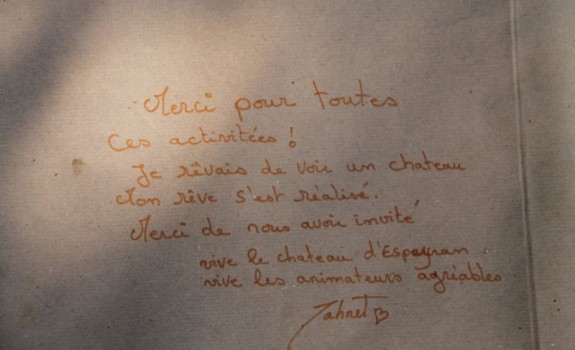 Merci pour toutes
ces activitées !
Je rêvais de voir un chateau
Mon rêve s'est réalisé.
Merci de nous avoir invité
vive le chateau d'Espeyran
vive les animateurs agréables